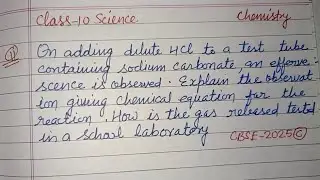 Class-10 Science Chemistry
Q1 On adding dilute HCl to a test tube
containing sodium carbonate, an efferve-
scence is observed. Explain the observat
ion giving chemical equation for the
reaction. How is the gas released tested
in a school laboratory CBSE-2025 C